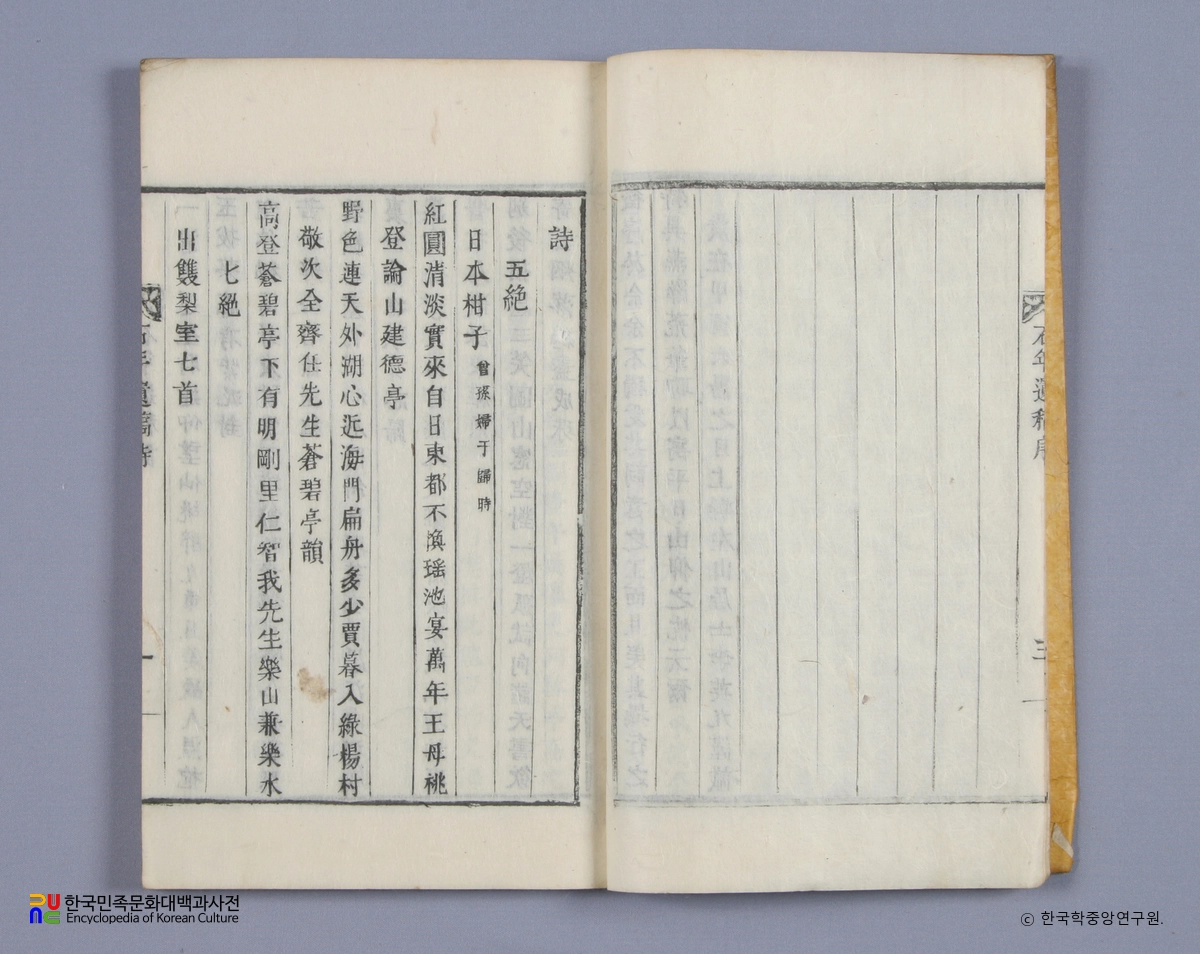 石年遺稿序
三
詩
五絶
日本柑子 曾孫婦于歸時
紅圓清淡實來自日東都不渙瑶池宴萬年王母桃
登論山建德亭
野色連天外湖心近海門扁舟多少賈暮入綠楊村
敬次全齊任先生蒼碧亭韻
高登蒼碧亭下有明剛里仁智我先生樂山兼樂水
七絶
出雙梨室七首
石年遺稿詩
一
한국민족문화대백과사전
Encyclopedia of Korean Culture
ⓒ 한국학중앙연구원.